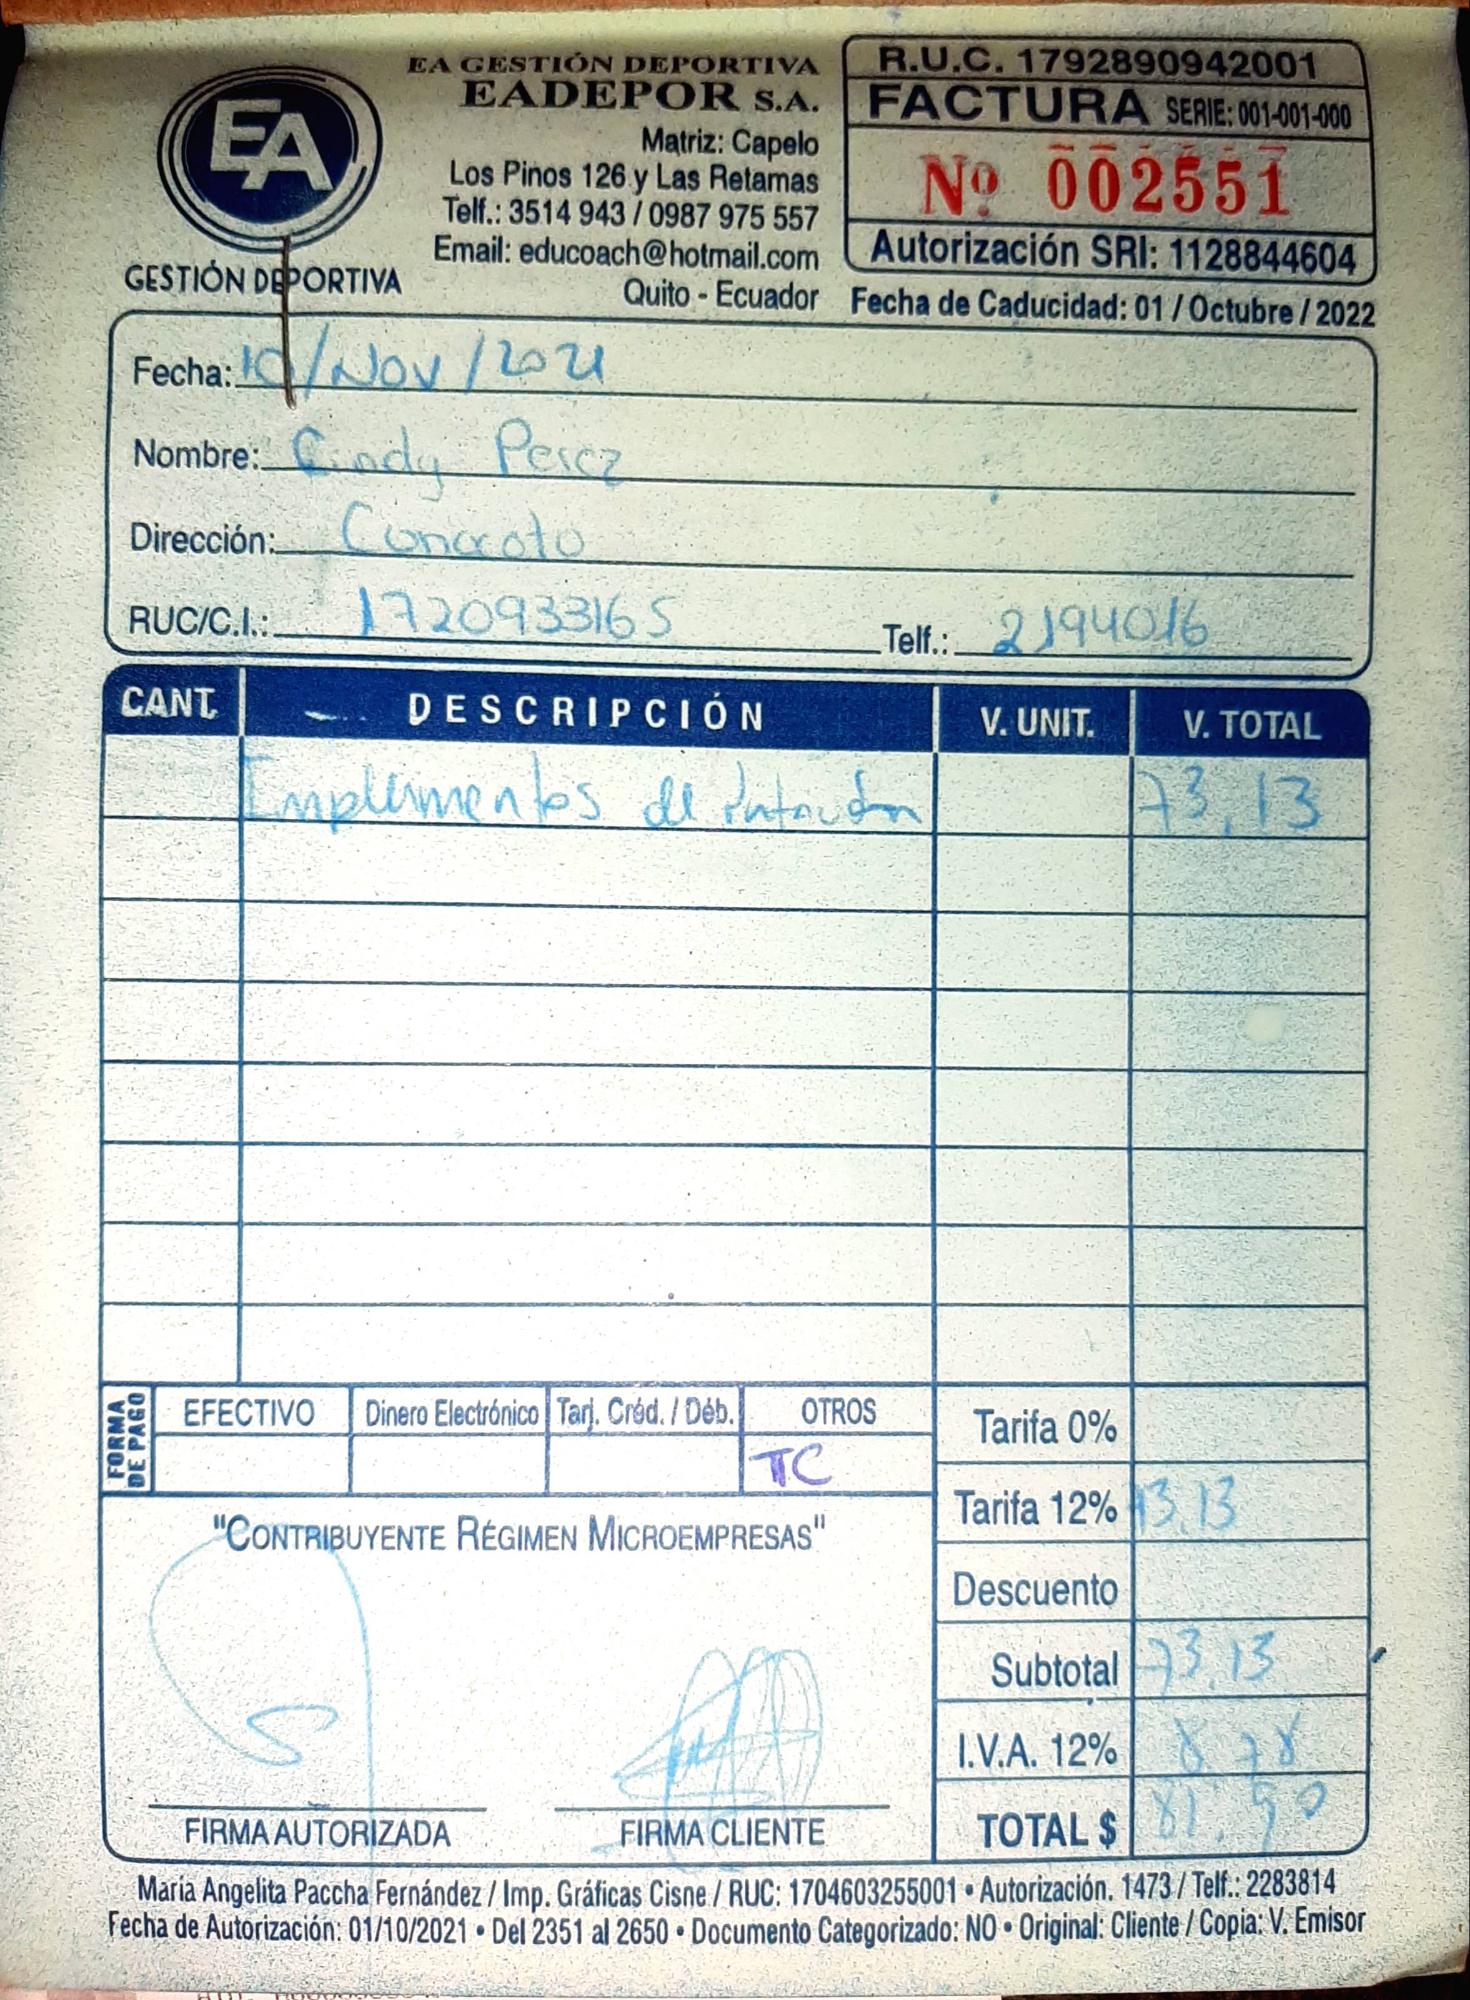 EA
GESTIÓN DEPORTIVA
EA GESTIÓN DEPORTIVA
EADEPOR S.A.
Matriz: Capelo
Los Pinos 126 y Las Retamas
Telf.: 3514 943 / 0987 975 557
Email: educoach@hotmail.com
Quito - Ecuador
R.U.C. 1792890942001
FACTURA SERIE: 001-001-000
Nº 002551
Autorización SRI: 1128844604
Fecha de Caducidad: 01 / Octubre / 2022
Fecha: 10/Nov/2021
Nombre: Cindy Perez
Dirección: Conocoto
RUC/C.I.: 1720933165 Telf.: 2194016
CANT. DESCRIPCIÓN V. UNIT. V. TOTAL
Implementos de 73,13
FORMA DE PAGO
EFECTIVO Dinero Electrónico Tarj. Créd. / Déb. OTROS
TC
Tarifa 0%
Tarifa 12% 73,13
Descuento
Subtotal 73,13
I.V.A. 12% 8,78
TOTAL $ 81,90
"CONTRIBUYENTE RÉGIMEN MICROEMPRESAS"
FIRMA AUTORIZADA FIRMA CLIENTE
María Angelita Paccha Fernández / Imp. Gráficas Cisne / RUC: 1704603255001 • Autorización. 1473 / Telf.: 2283814
Fecha de Autorización: 01/10/2021 • Del 2351 al 2650 • Documento Categorizado: NO • Original: Cliente / Copia: V. Emisor